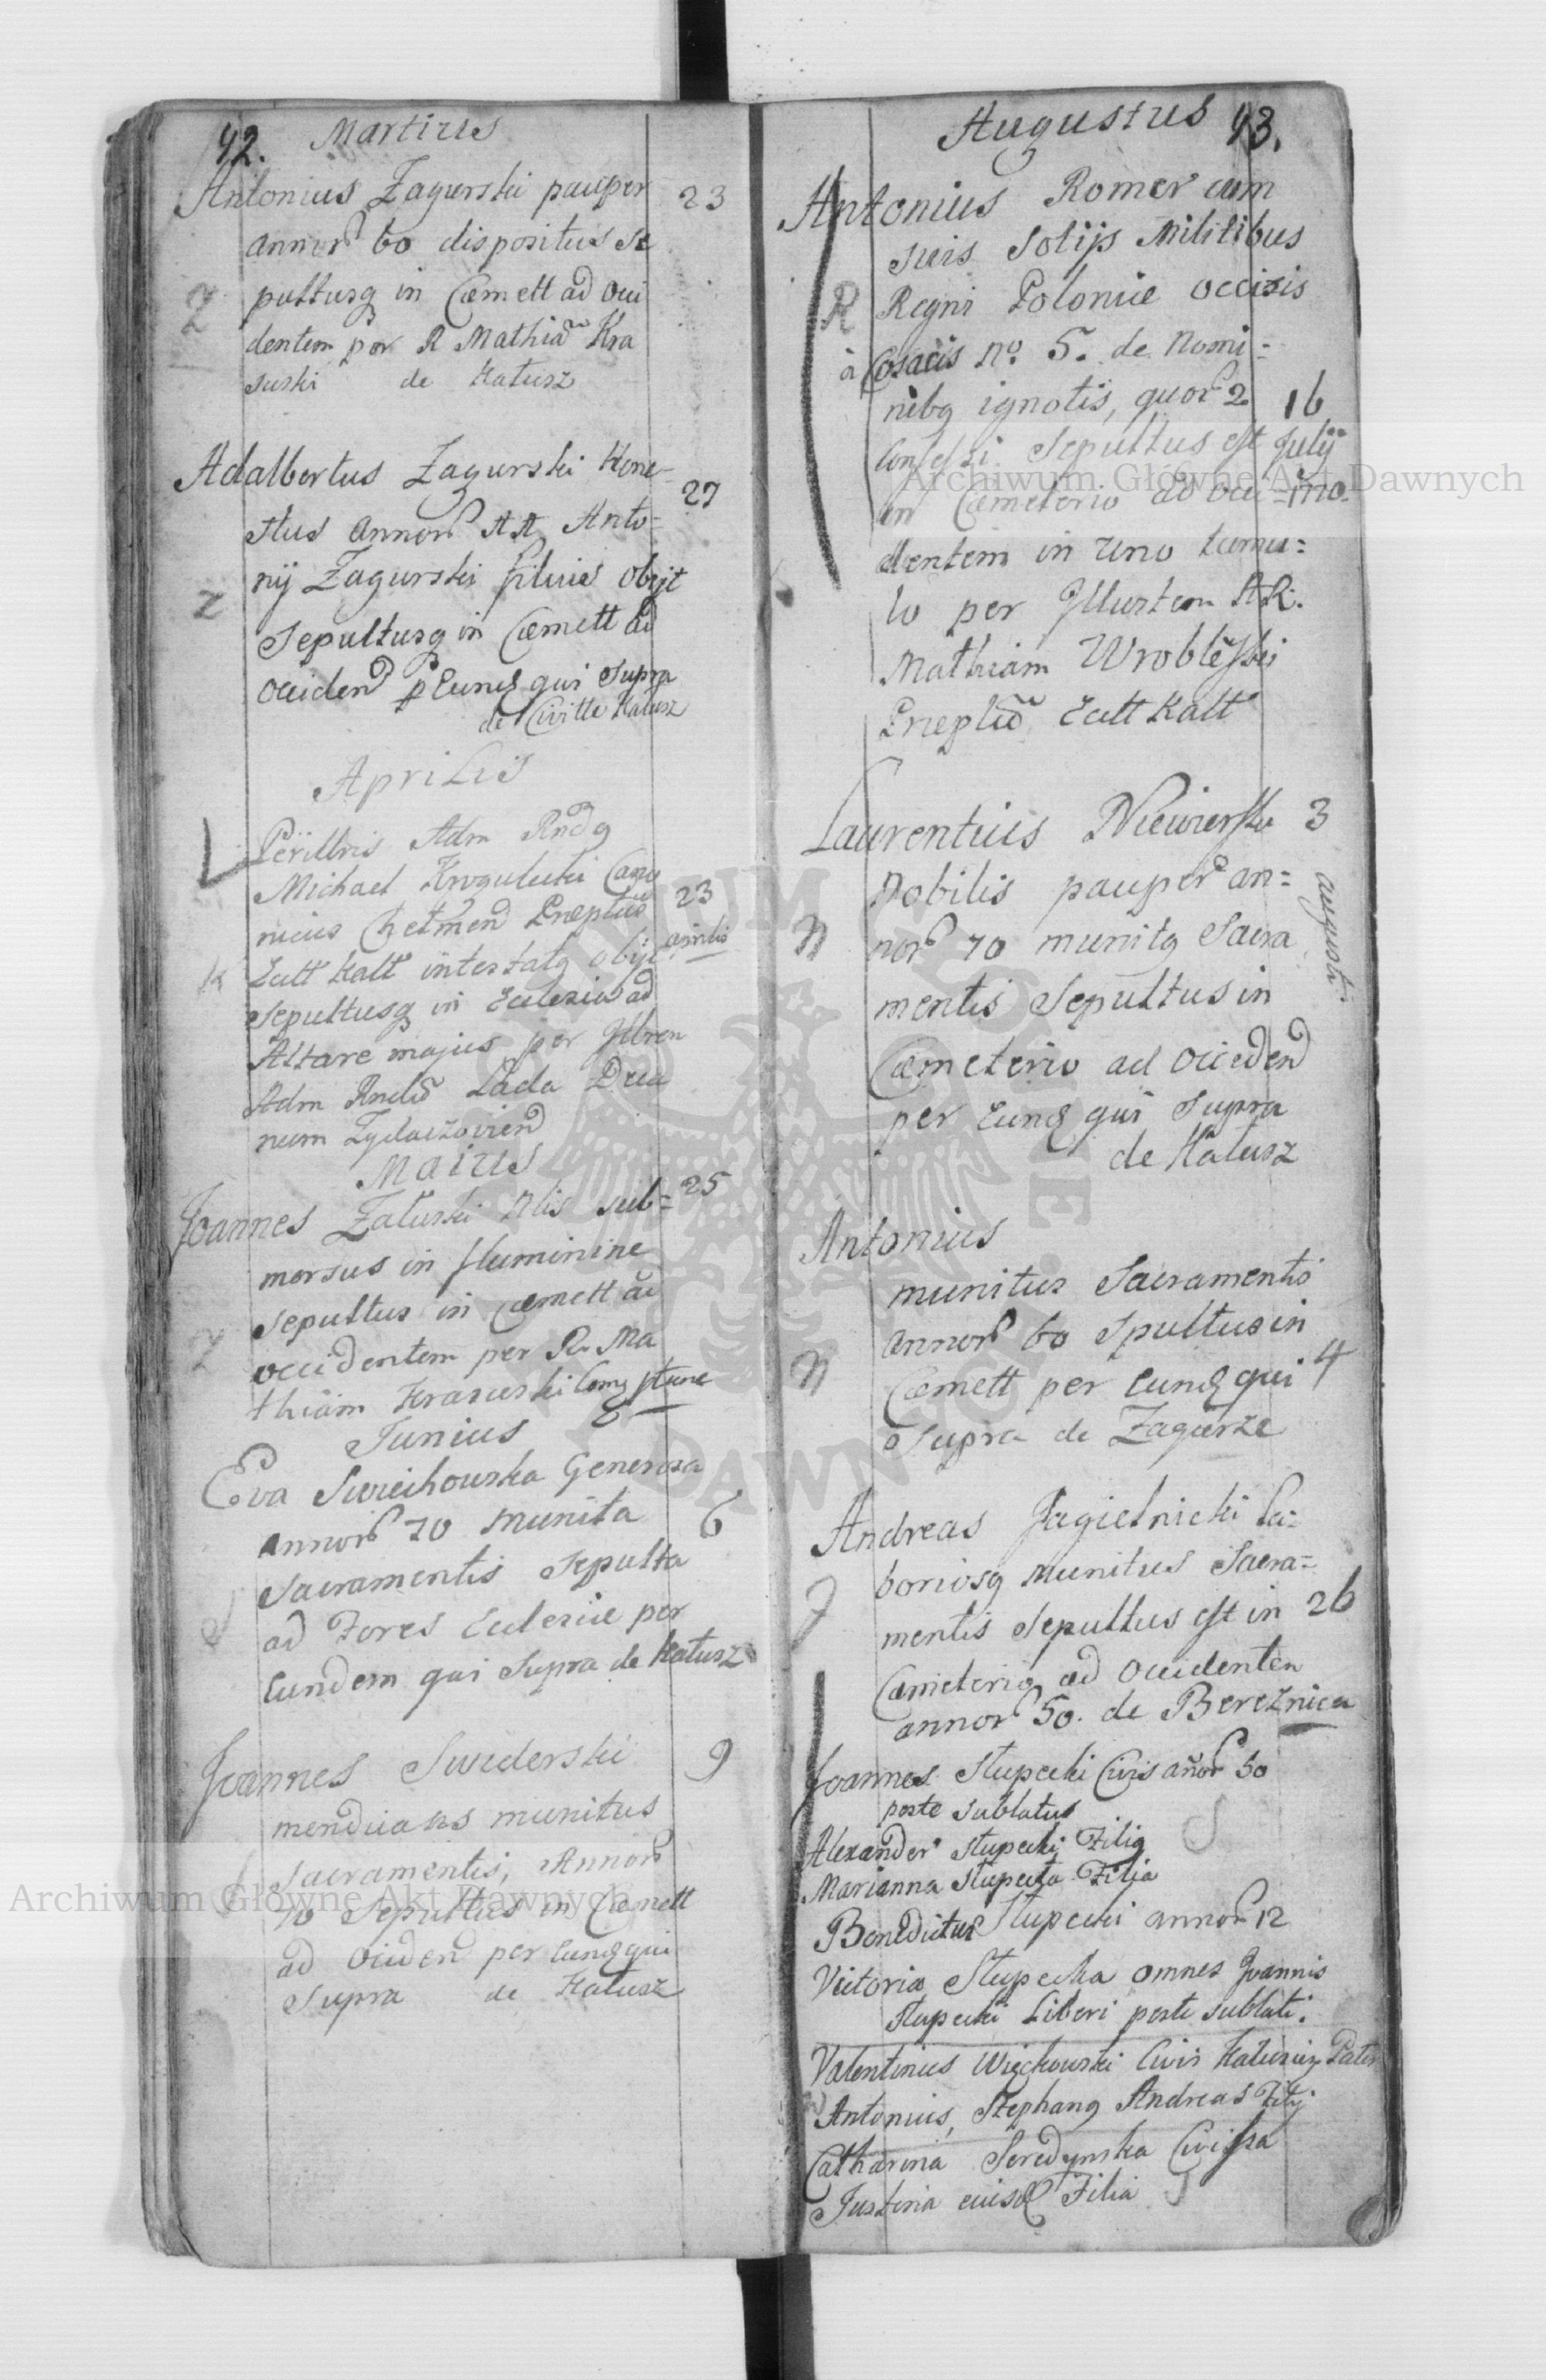 42. Martius
Antonius Zagurski pauper 23
annor 60 dispositus se
pultusq in Cœmett ad Occi
dentem per R Mathiã Kra
suski de Kałusz
Adalbertus Zagurski Hone-
27
stus annor Anto=
nij Zagurski filius obijt
Z
Sepultusq in Cœmett ad
Occiden p Eund qui Supra
de Civitte Kałusz
Aprilis
Perillris Adm Rndq
Michael Krogulecki Cano
nicus Chełmen Præptus 23
aprilis
Eccl Kall intestatq obijt
K
Sepultusq in Eclesia ad
Altare majus per Illrem
Adm Rndũ Lada Deca
num Zydaczovien
Maius
Joannes Załuski Nlis sub= 25
mersus in fluminine
Sepultus in Cœmett ad
Z
occidentem per R. Ma
thiam Krasuski
Junius
Eva Swiechowska Generosa
annor 70 munita 6
Sacramentis Sepulta
S
ad Fores Eclesiæ per
Eundem qui Supra de Kałusz
Joannes Swiderski 9
mendicans munitus
Sacramentis, Annor
70 Sepultus in Cœmett
ad Occiden per Eund qui
Supra de Kałusz
Augustus 43.
Antonius Romer cum
suis Sotijs Militibus
R
Regni Poloniæ occisis
à Cosacis No. 5. de Nomi=
nibq ignotis, quor 2 16
Confessi Sepultus est Julij
in Cœmeterio ad occi= 1770.
dentem in uno tumu=
lo per Illustem AR.
Mathiam Wroblewski
Præplũ Eccl Kall
Laurentius 3
Nobilis pauper an=
augusti
N
nor 70 munitq Sacra
mentis Sepultus in
Cœmeterio ad Occiden
per Eund qui Supra
de Kałusz
Antonius
munitus Sacramentis
annor 60 Spultus in
N
Cœmett per Eund qui 4
Supra de Zagurze
Andreas Jagielnicki La=
boriosq Munitus Sacra=
J
mentis Sepultus est in 26
Cœmeterio ad Occidenten
annor 50. de Bereznica
Joannes Słupecki Civis añor 50
peste sublatus
S
Alexander Słupecki Filiq
Marianna Słupecka Filia
Benedictus Słupecki annor 12
Victoria Słupecka omnes Joannis
Słupecki Liberi peste sublati.
Valentinus Więckowski Civis Kałusien Pater
Antonius, Stephanq Andreas Filij
Catharina Seredynska Civissa
Justina eiusd Filia S
Archiwum Główne Akt Dawnych
Archiwum Główne Akt Dawnych